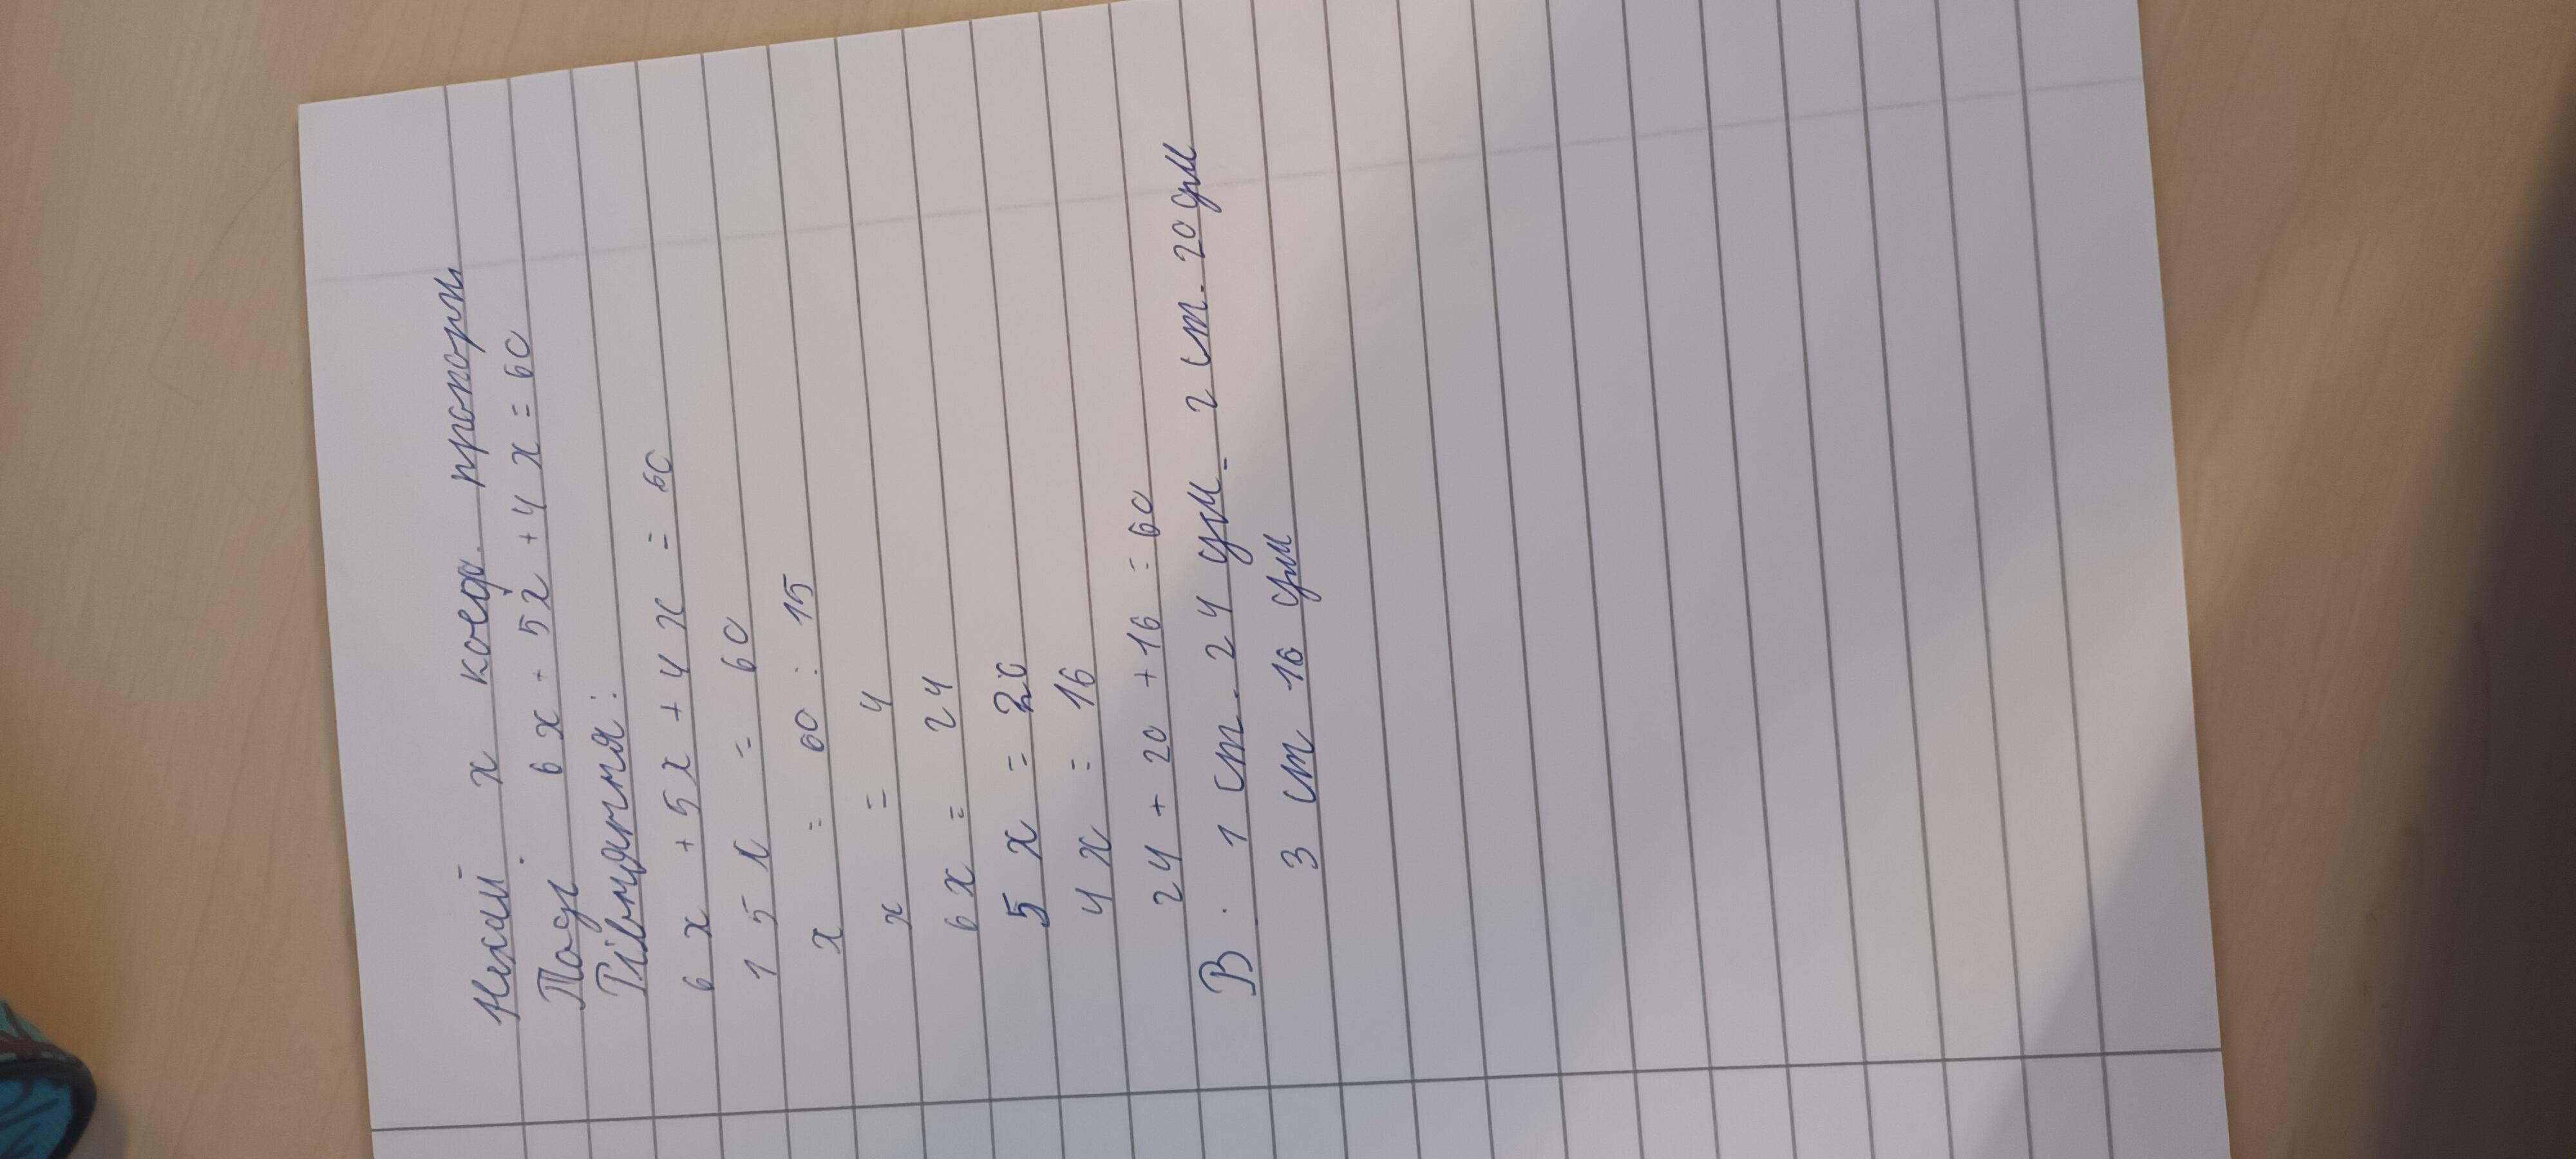 Нехай х коеф. пропорц
Тоді 6х + 5х + 4х = 60
Рівняння:
6х + 5х + 4х = 60
15х = 60
х = 60 : 15
х = 4
6х = 24
5х = 20
4х = 16
24 + 20 + 16 = 60
В. 1 ст - 24 дм - 2 ст - 20 дм
3 ст 16 дм